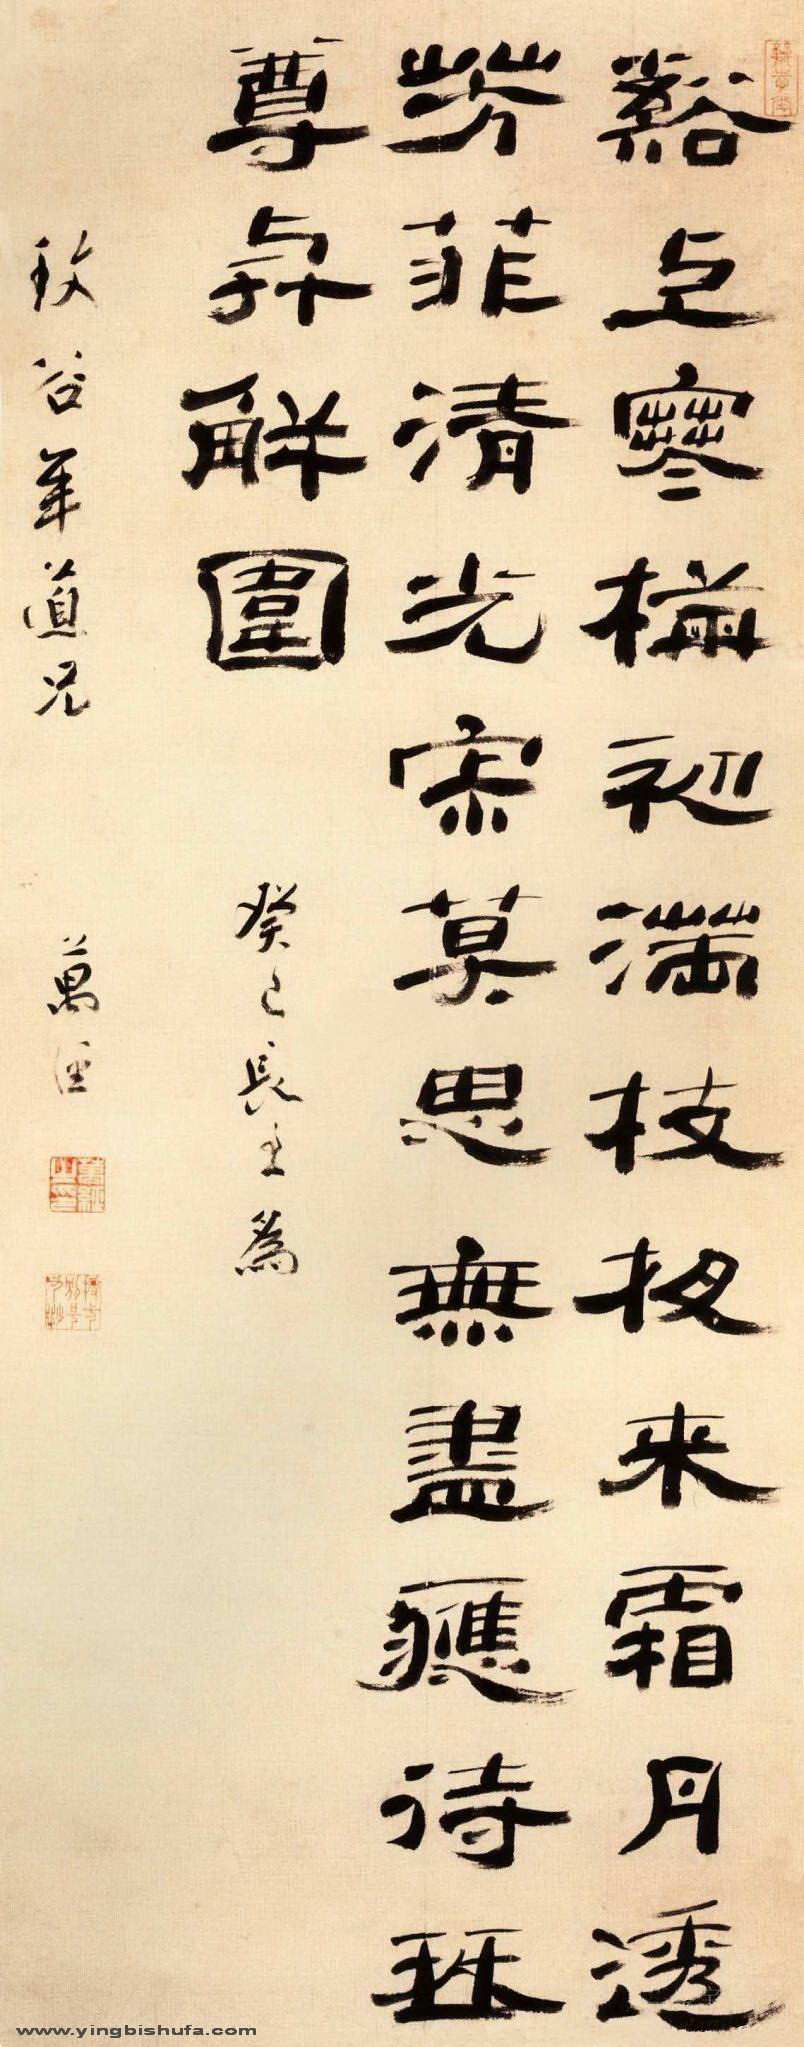 谿上寒梅初滿枝夜来霜月透
芳菲清光宋莫思無盡應待琴
尊與解圍
癸巳長至為
谷年道兄
萬經
www.yingbishufa.com